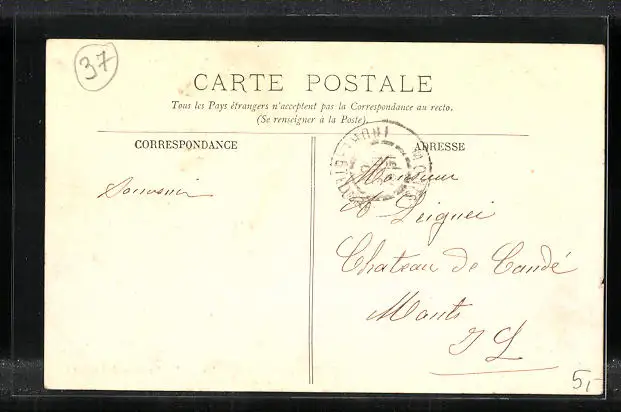 37
CARTE POSTALE
Tous les Pays étrangers n'acceptent pas la Correspondance au recto.
(Se renseigner à la Poste).
CORRESPONDANCE
Souvenir
ADRESSE
Monsieur
Chateau de Candé
Monts
I L
5,-